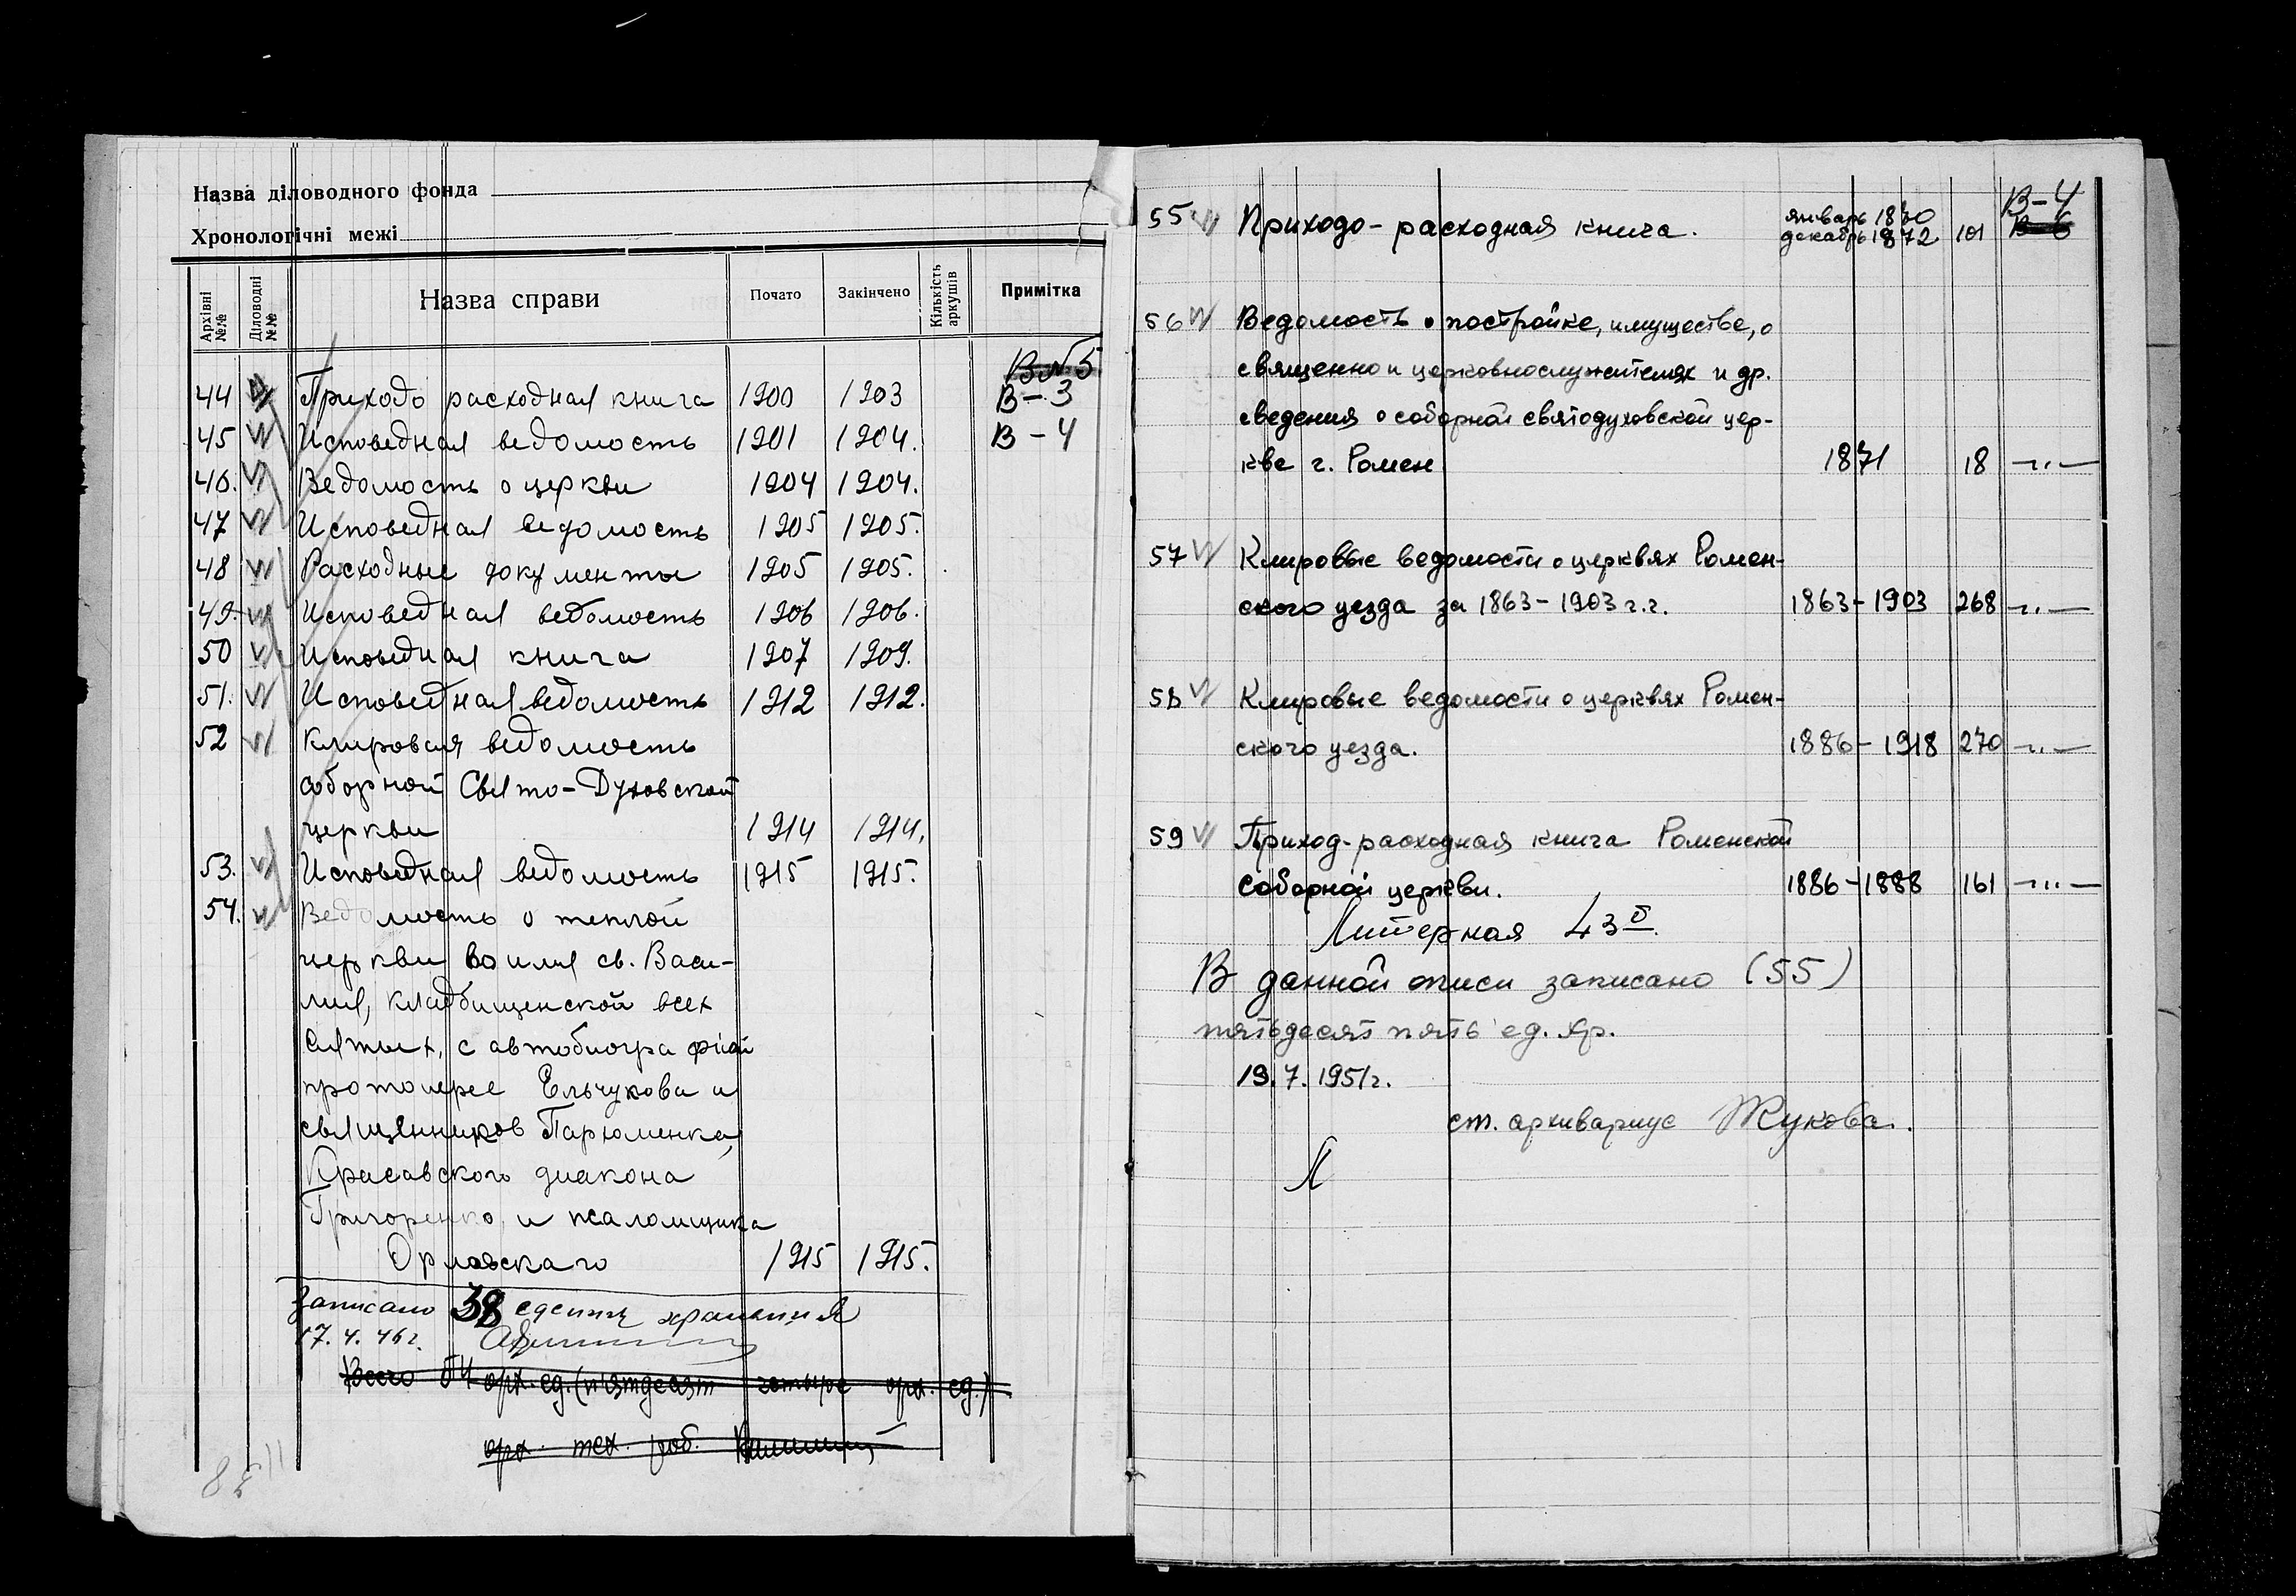 Назва діловодного фонда
Хронологічні межі
Архівні №№ Діловодні №№ Назва справи Почато Закінчено Кількість аркушів Примітка
В №5
44 Приходо расходная книга 1900 1903 В-3
45 Исповедная ведомость 1901 1904. В-4
46. Ведомость о церкви 1904 1904.
47 Исповедная ведомость 1905 1905.
48 Расходные документы 1905 1905.
49. Исповедная ведомость 1906 1906.
50 Исповедная книга 1907 1909.
51. Исповедная ведомость 1912 1912.
52 Клировая ведомость
соборной Свято-Духовской
церкви 1914 1914.
53. Исповедная ведомость 1915 1915.
54. Ведомость о теплой
церкви во имя св. Васи-
лия, кладбищенской всех
святых, с автобиографией
протоиерее Ельчукова и
священников Пархоменка,
Красавского диакона
Григоренко и псаломщика
Орловского 1915 1915.
Записано 38 единиц хранения
17.4.46г.
Всего 54 арх. ед. (п'ятдесят чотыре арх. ед.)
арх. тех. роб.
55 Приходо-расходная книга. январь 1870 декабрь 1872 101 В-4
В-6
56 Ведомость о постройке, имуществе, о
священно и церковнослужителях и др.
сведения о соборной святодуховской цер-
кве г. Ромен 1871 18 -"-
57 Клировые ведомости о церквях Ромен-
ского уезда за 1863-1903 г.г. 1863-1903 268 -"-
58 Клировые ведомости о церквях Ромен-
ского уезда. 1886-1918 270 -"-
59 Приход-расходная книга Роменской
соборной церкви. 1886-1888 161 -"-
Литерная 43а
В данной описи записано (55)
пятьдесят пять ед. хр.
19.7.1951г.
ст. архивариус Жукова.